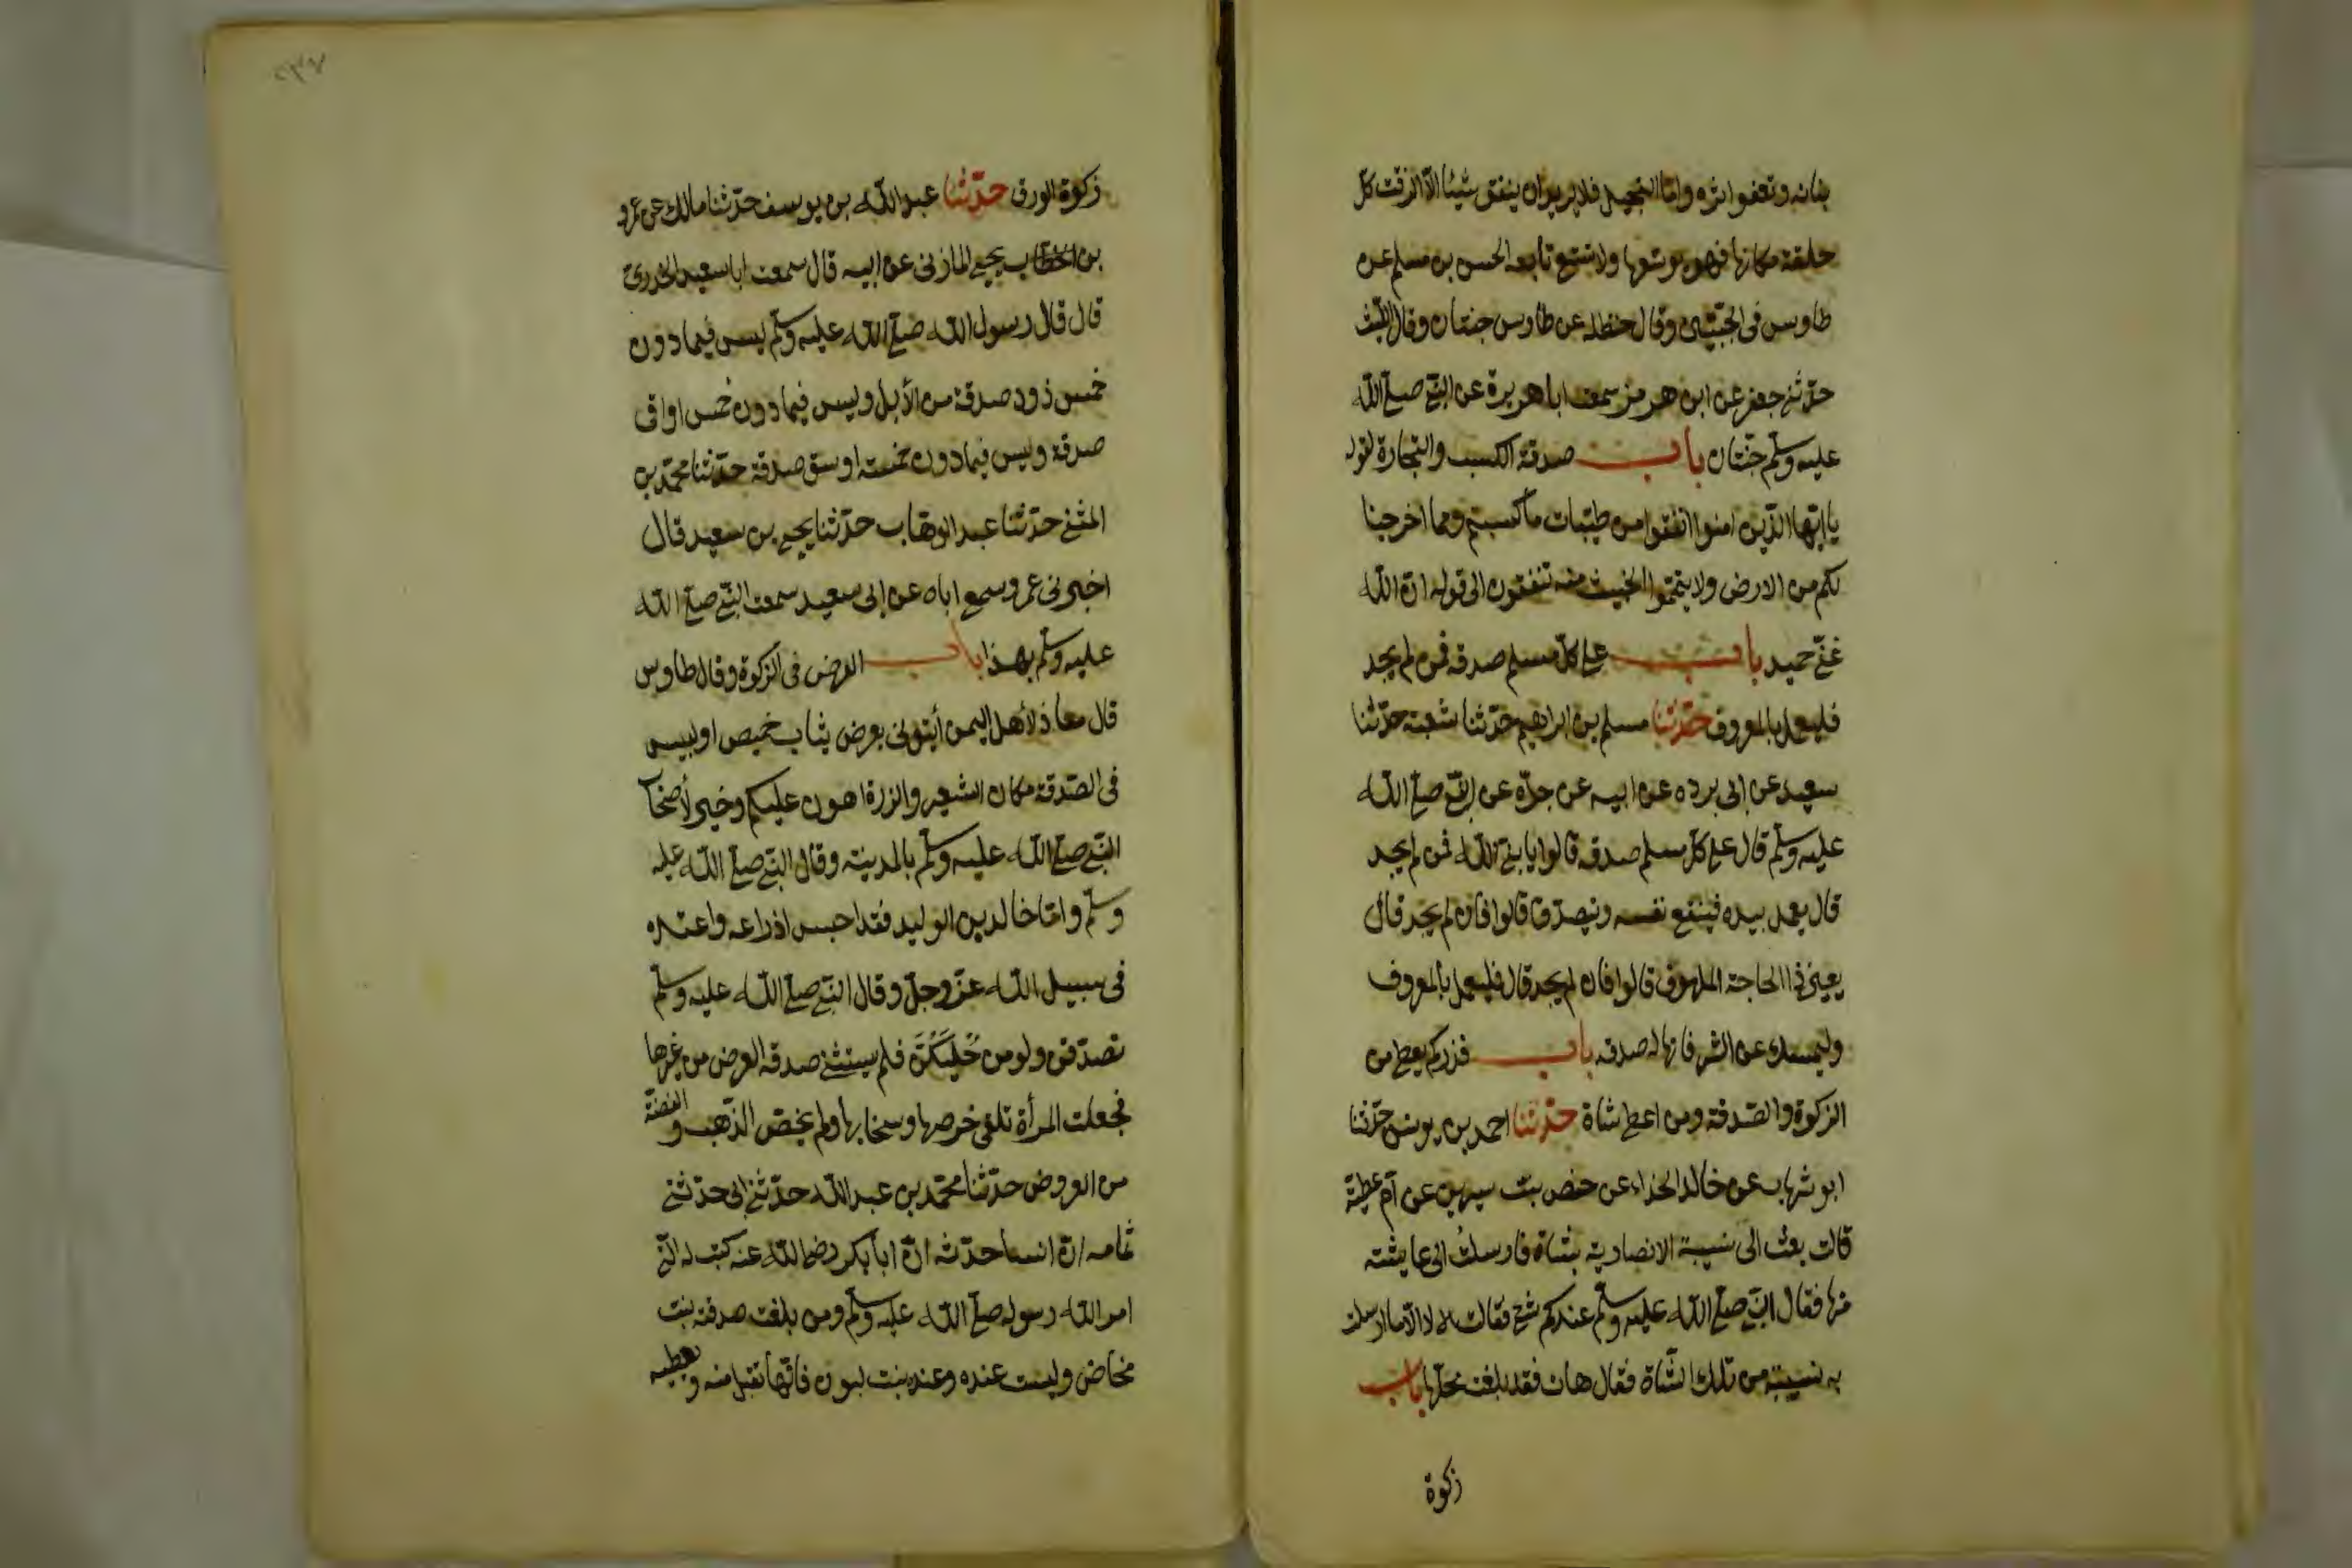 بنانه وتعفو اثره واما البخيل فلا يريد ان ينفق شيئا الا لزقت كل
حلقة مكانها فهو يوسعها ولا تتسع تابعه الحسن بن مسلم عن
طاوس فى الجبتين وقال حنظله عن طاوس جنتان وقال الليث
حدثنى جعفر عن ابن هرمز سمعت ابا هريرة عن النبى صلى الله
عليه وسلم جنتان باب صدقة الكسب والتجارة لقوله
يا ايها الذين امنوا انفقوا من طيبات ما كسبتم ومما اخرجنا
لكم من الارض ولا تيمموا الخبيث منه تنفقون الى قوله ان الله
غنى حميد باب على كل مسلم صدقه فمن لم يجد
فليعمل بالمعروف حدثنا مسلم بن ابراهيم حدثنا شعبة حدثنا
سعيد عن ابى برده عن ابيه عن جده عن النبى صلى الله
عليه وسلم قال على كل مسلم صدقه قالوا يا نبى الله فمن لم يجد
قال يعمل بيده فينفع نفسه ويتصدق قالوا فان لم يجد قال
يعين ذا الحاجة الملهوف قالوا فان لم يجد قال فليعمل بالمعروف
وليمسك عن الشر فانها له صدقه باب قدر كم يعطى من
الزكوة والصدقة ومن اعطى شاة حدثنا احمد بن يونس حدثنا
ابو شهاب عن خالد الحذاء عن حفص بنت سيرين عن ام عطية
قالت بعث الى نسيبة الانصارية بشاة فارسلت الى عايشه
منها فقال النبى صلى الله عليه وسلم عندكم شئ فقالت لا الا ما ارسلت
به نسيبة من تلك الشاة فقال هات فقد بلغت محلها باب
زكوة
٢٣٧
زكوة الورق حدثنا عبد الله بن يوسف حدثنا مالك عن عمرو
بن يحيى المازنى عن ابيه قال سمعت ابا سعيد الخدرى
قال قال رسول الله صلى الله عليه وسلم ليس فيما دون
خمس ذود صدقة من الأبل وليس فيما دون خمس اواق
صدقة وليس فيما دون خمسة اوسق صدقة حدثنا محمد بن
المثنى حدثنا عبد الوهاب حدثنا يحيى بن سعيد قال
اخبرنى عمرو سمع اباه عن ابى سعيد سمعت النبى صلى الله
عليه وسلم بهذا باب العرض فى الزكوة وقال طاوس
قال معاذ لأهل اليمن أيتونى بعرض ثياب خميص او لبيس
فى الصدقة مكان الشعير والذرة اهون عليكم وخير لأصحاب
النبى صلى الله عليه وسلم بالمدينة وقال النبى صلى الله عليه
وسلم واما خالد بن الوليد فقد احبس ادراعه واعتده
فى سبيل الله عز وجل وقال النبى صلى الله عليه وسلم
تصدقن ولو من حُلِيِّكُنَّ فلم يستثنى صدقه العرض من غيرها
فجعلت المرأة تلقى خرصها وسخابها ولم يخص الذهب والفضة
من العروض حدثنا محمد بن عبد الله حدثنى ابى حدثنى
ثمامه ان انسا حدثه ان ابا بكر رضى الله عنه كتب له التى
امر الله رسوله صلى الله عليه وسلم ومن بلغت صدقته بنت
مخاض وليست عنده وعنده بنت لبون فانها تقبل منه ويعطيه